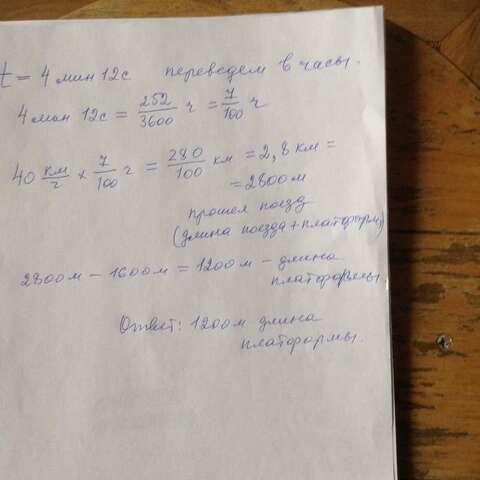 t = 4 мин 12с переведем в часы.
4 мин 12с = 252/3600 ч = 7/100 ч
40 км/ч × 7/100 ч = 280/100 км = 2,8 км =
= 2800м
прошел поезд
(длина поезда + платформы)
2800м − 1600м = 1200м − длина
платформы
Ответ: 1200м длина
платформы.